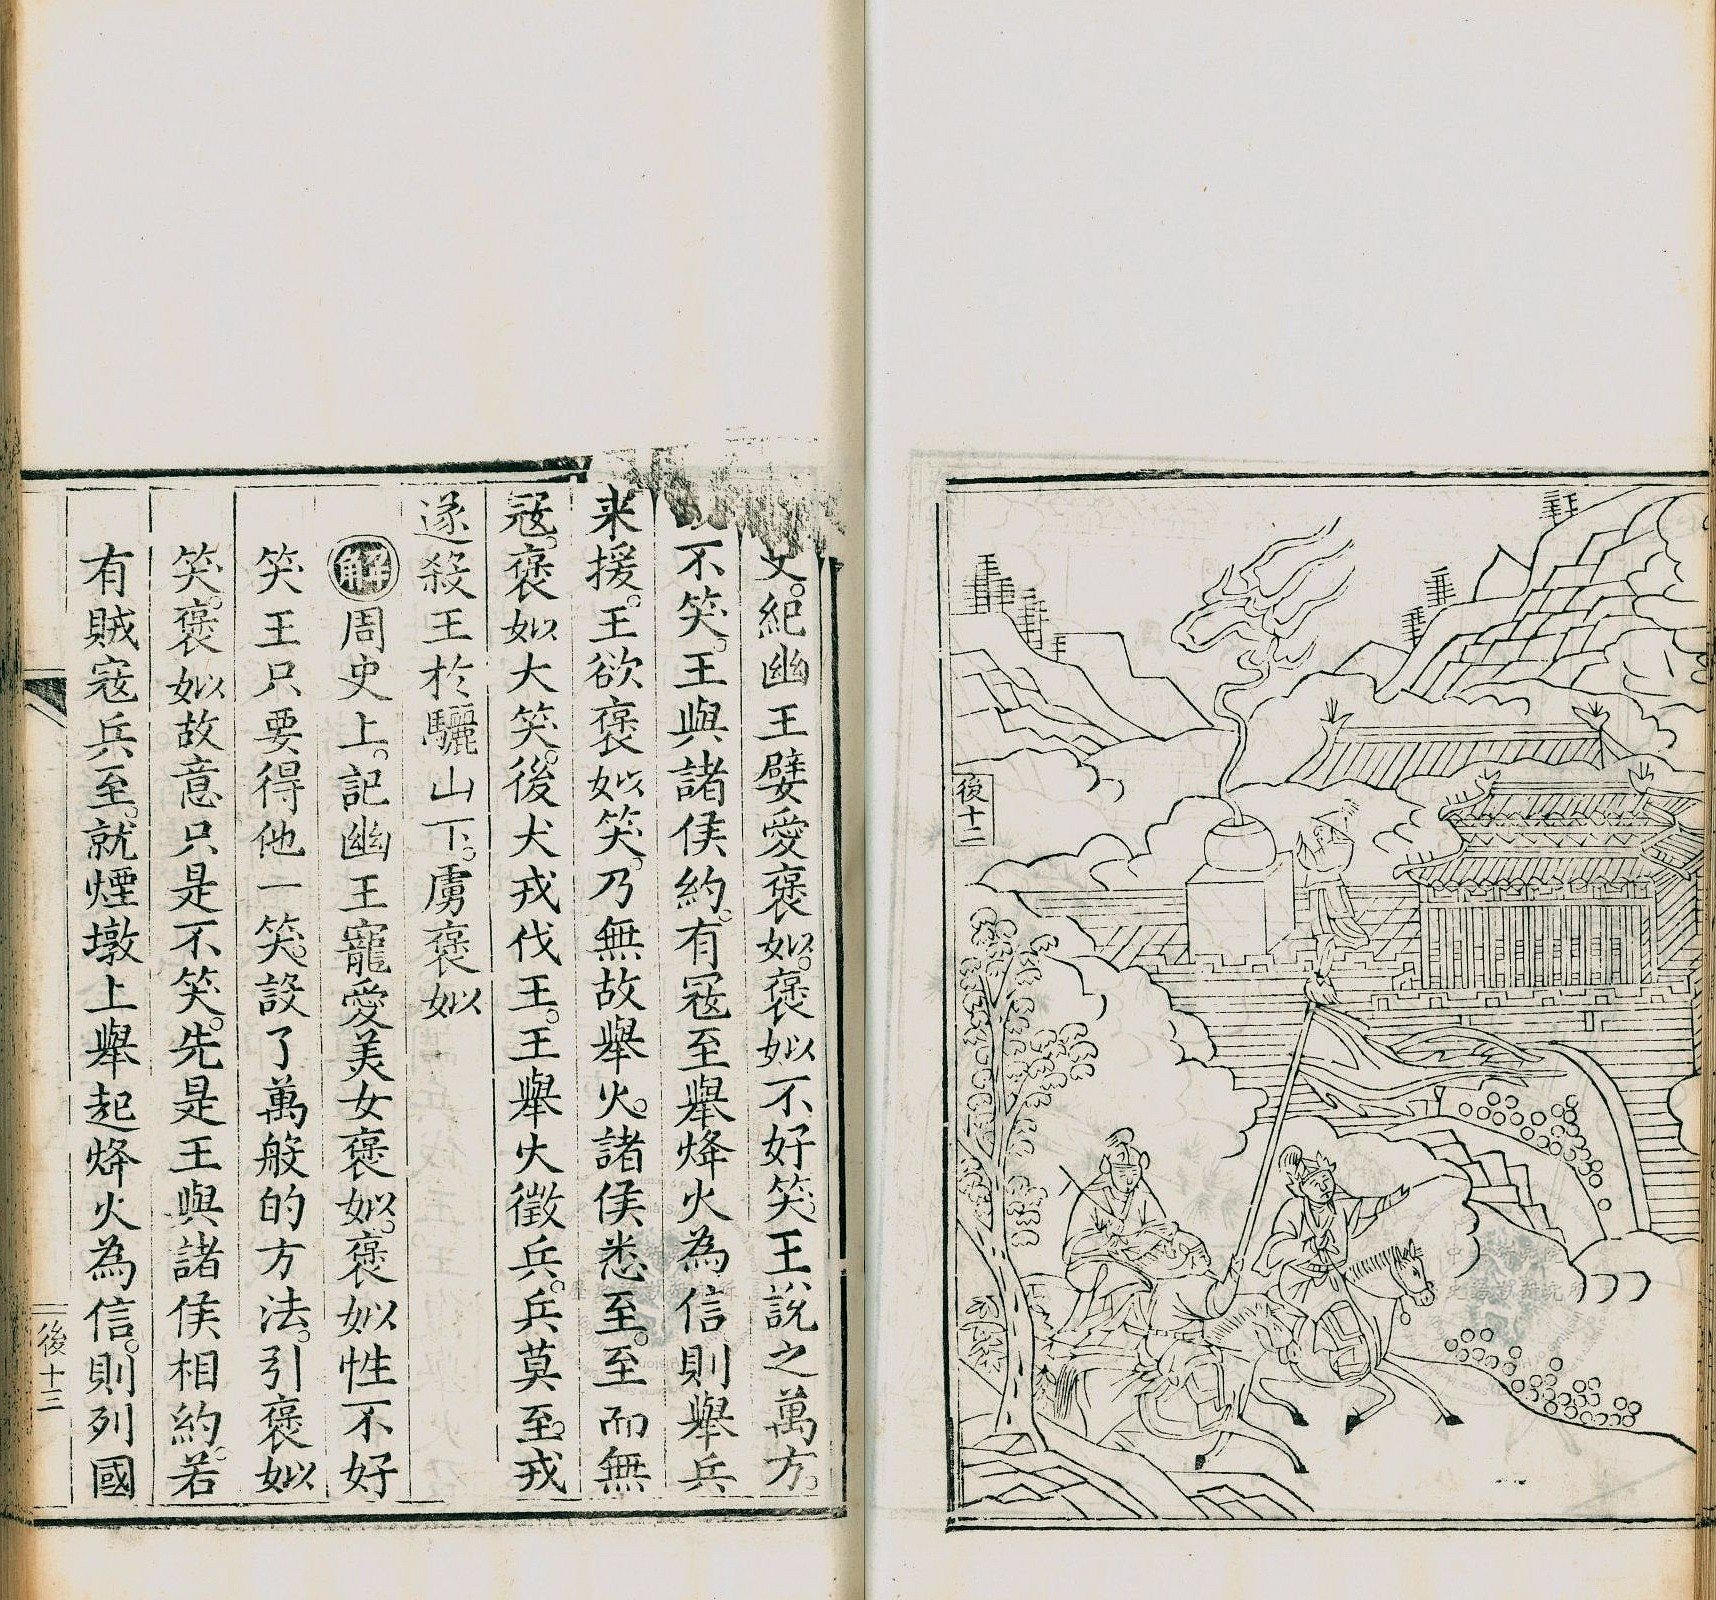 後十二
史。紀幽王嬖愛褒姒。褒姒不好笑。王說之萬方。
不笑。王與諸侯約。有寇至舉烽火為信則舉兵
来援。王欲褒姒笑。乃無故舉火。諸侯悉至。至而無
寇。褒姒大笑。後犬戎伐王。王舉火徵兵。兵莫至。戎
遂殺王於驪山下。虜褒姒
解周史上。記幽王寵愛美女褒姒。褒姒性不好
笑王只要得他一笑。設了萬般的方法。引褒姒
笑。褒姒故意只是不笑。先是王與諸侯相約。若
有賊寇兵至。就煙墩上舉起烽火為信。則列國
後十三